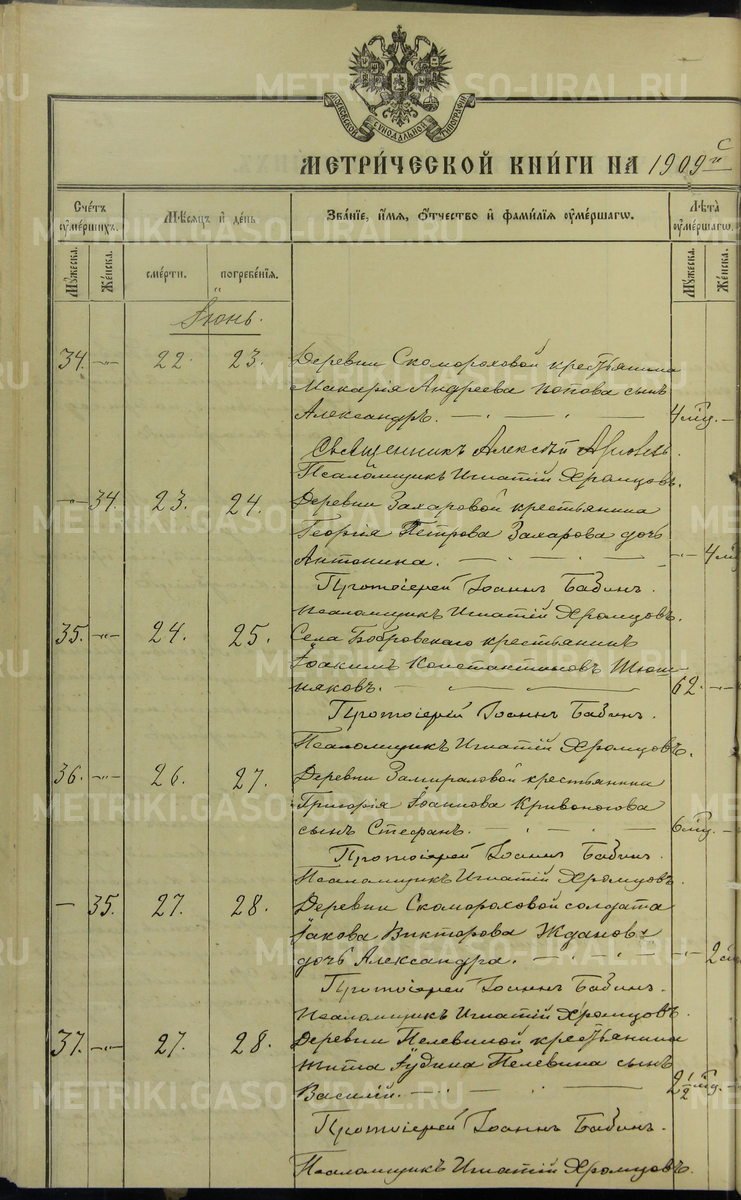 МОСКОВСКОЙ СѴНОДАЛЬНОЙ ТИПОГРАФІИ
МЕТРИ́ЧЕСКОЙ КНИ́ГИ НА 1909 й С
Счетъ ᲂу҆ме́ршихъ.
Мѣсяцъ и҆ день
Зва́нїе, и҆́мѧ, ѻ҆́тчество и҆ фами́лїѧ ᲂу҆ме́ршагѡ.
Лѣта̀ ᲂу҆ме́ршагѡ.
Мꙋ́жеска.
Же́нска.
сме́рти.
погребе́нїѧ.
Мꙋ́жеска.
Же́нска.
Іюнь.
34. -"- 22. 23. Деревни Скомороховой крестьянина
Макарія Андреева Попова сынъ
Александръ. 4 мѣс. -
Священникъ Алексѣй
Псаломщикъ Игнатій Хромцовъ.
-"- 34. 23. 24. Деревни Захаровой крестьянина
Георгія Петрова Захарова дочь
Антонина. -"- 4
Протоіерей Іоаннъ Бабинъ.
Псаломщикъ Игнатій Хромцовъ.
35. -"- 24. 25. Села Бобровскаго крестьянинъ
Іоакимъ Константиновъ Тюш-
няковъ. 62. -"-
Протоіерей Іоаннъ Бабинъ.
Псаломщикъ Игнатій Хромцовъ.
36. -"- 26. 27. Деревни крестьянина
Григорія Іоаннова Кривоногова
сынъ Стефанъ. 6 мѣс. -
Протоіерей Іоаннъ Бабинъ.
Псаломщикъ Игнатій Хромцовъ.
- 35. 27. 28. Деревни Скомороховой солдата
Іакова Викторова Жданова
дочь Александра. -"- 2
Протоіерей Іоаннъ Бабинъ.
Псаломщикъ Игнатій Хромцовъ.
37. -"- 27. 28. Деревни Пелевиной крестьянина
Тита Іудина Пелевина сынъ
Василій. 2 1/2 мѣс. -
Протоіерей Іоаннъ Бабинъ.
Псаломщикъ Игнатій Хромцовъ.
METRIKI.GASO-URAL.RU